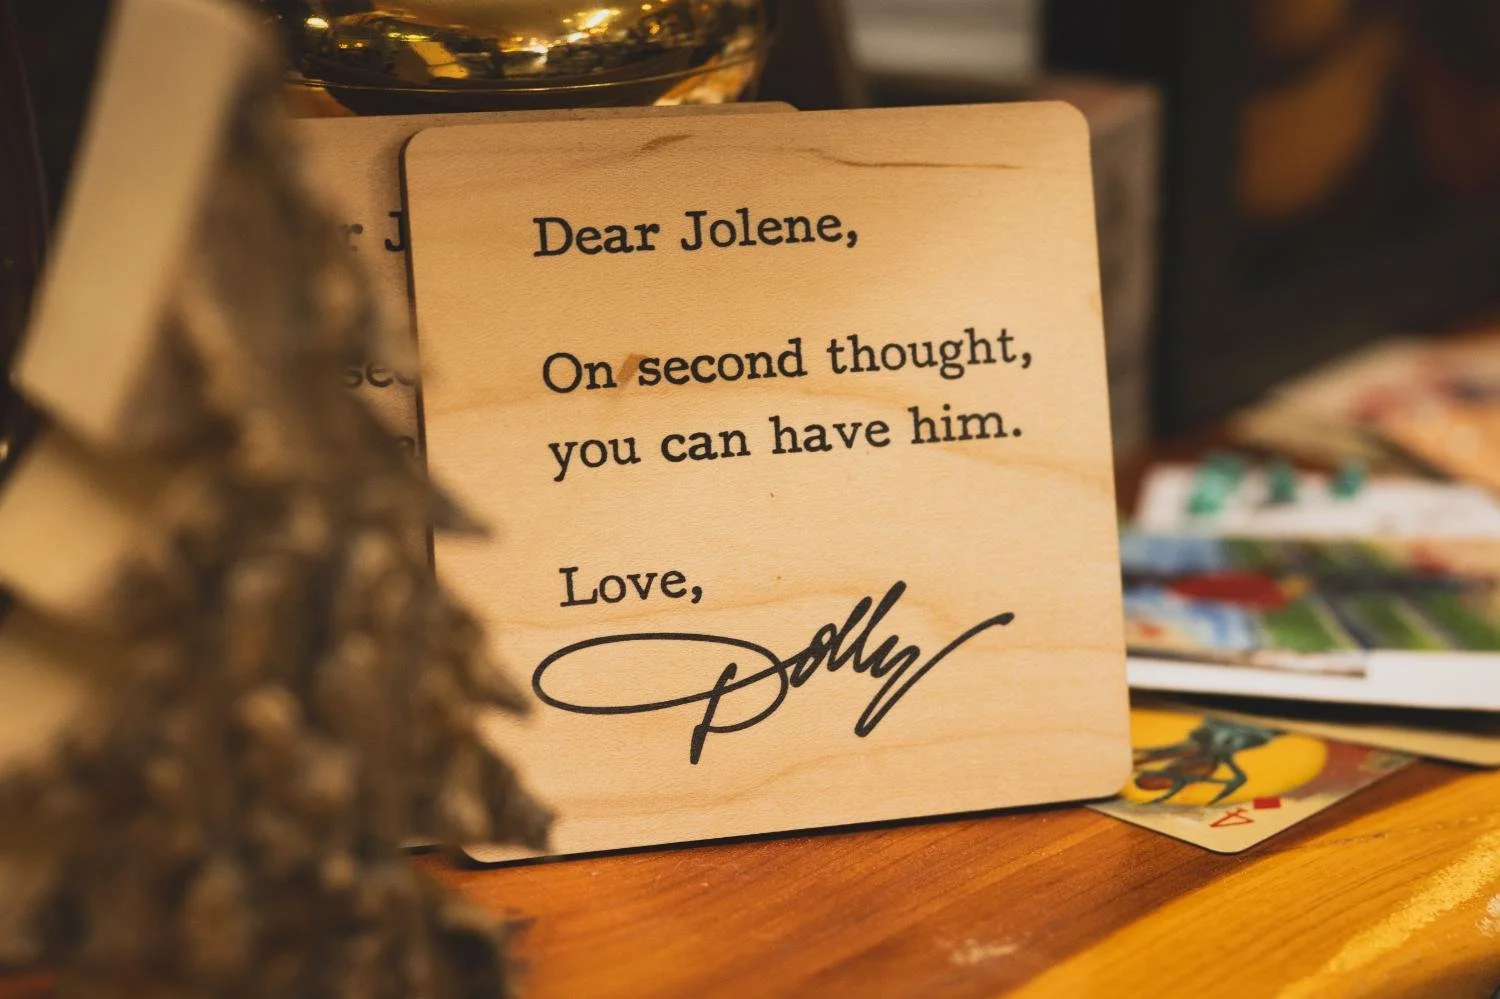 Dear Jolene,
On second thought,
you can have him.
Love,
Dolly
r J
sec
4